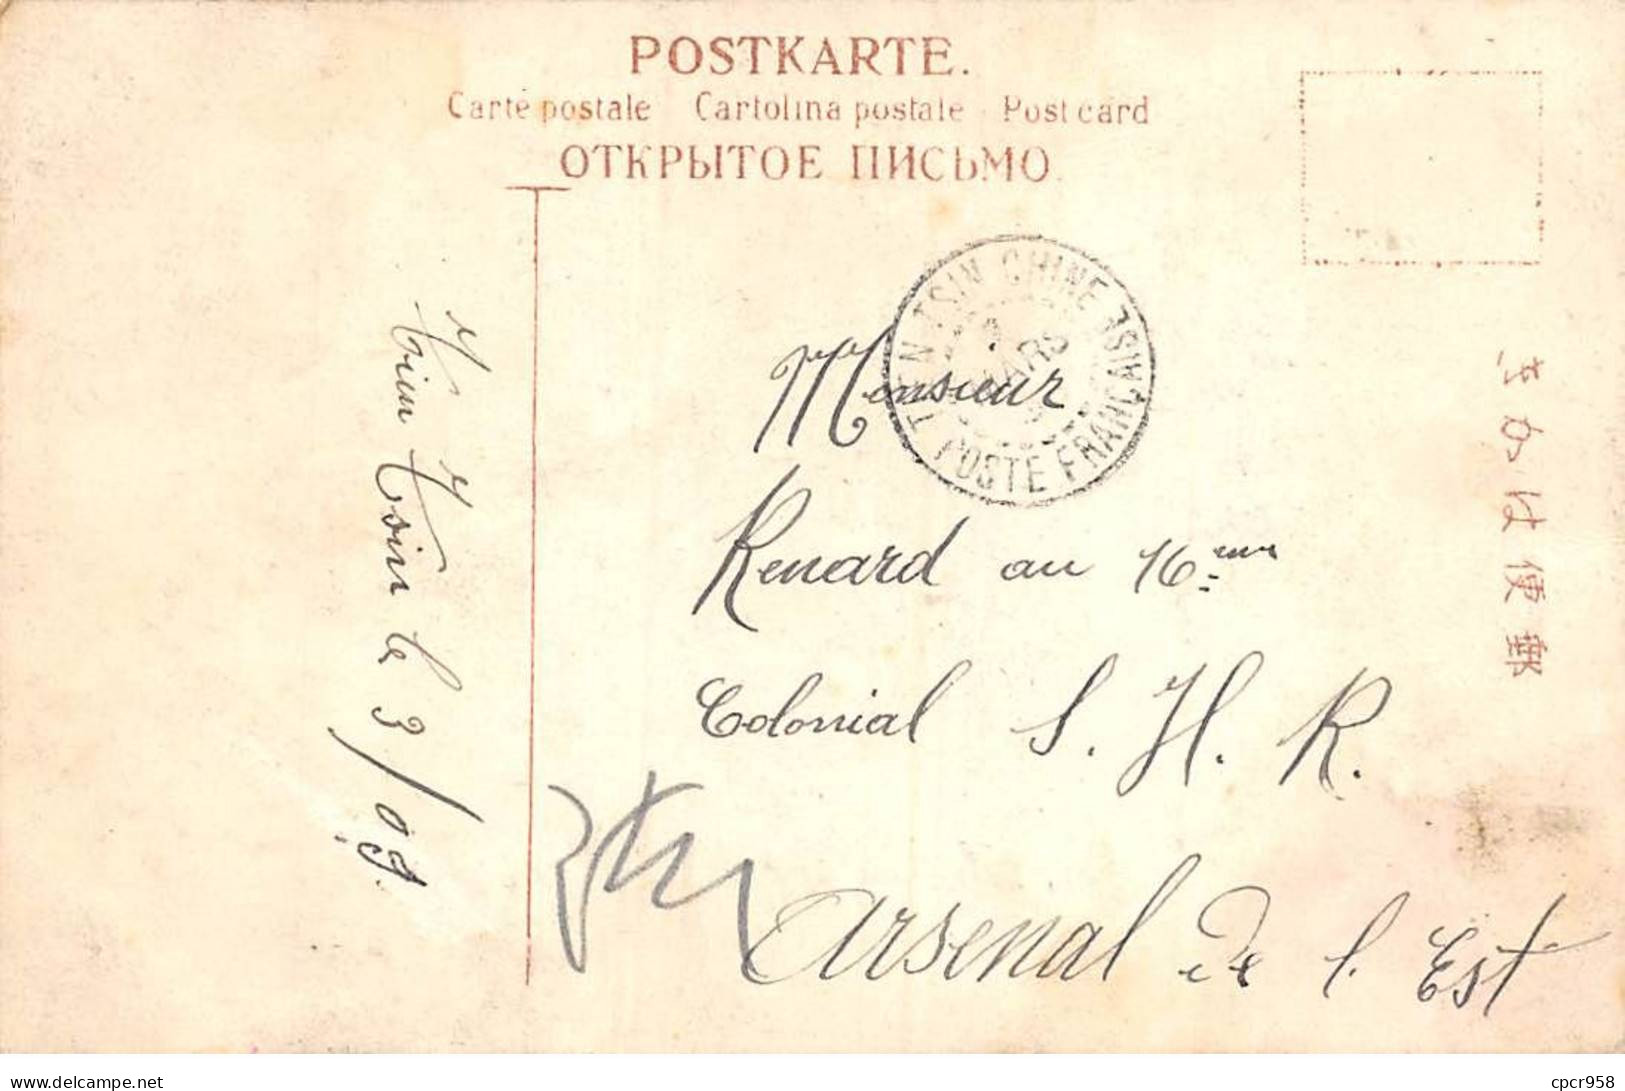 POSTKARTE.
Carte postale Cartolina postale Post card
ОТКРЫТОЕ ПИСЬМО.
TIEN-TSIN CHINE
MARS
POSTE FRANÇAISE
Monsieur
Renard au 16 =eme
Colonial S. H. R.
Arsenal de l'Est
Tien Tsin le 3/ 09.
きかは便郵
delcampe.net
cpcr958